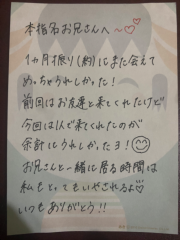 本指名お兄さんへ〜♡♡
1ヵ月振り(約)にまた会えて
めっちゃうれしかった!
前回はお友達と来てくれたけど
今回は1人で来てくれたのが
余計にうれしかったヨ!
お兄さんと一緒に居る時間は
私もとってもいやされるよ♡
いつもありがとう!!